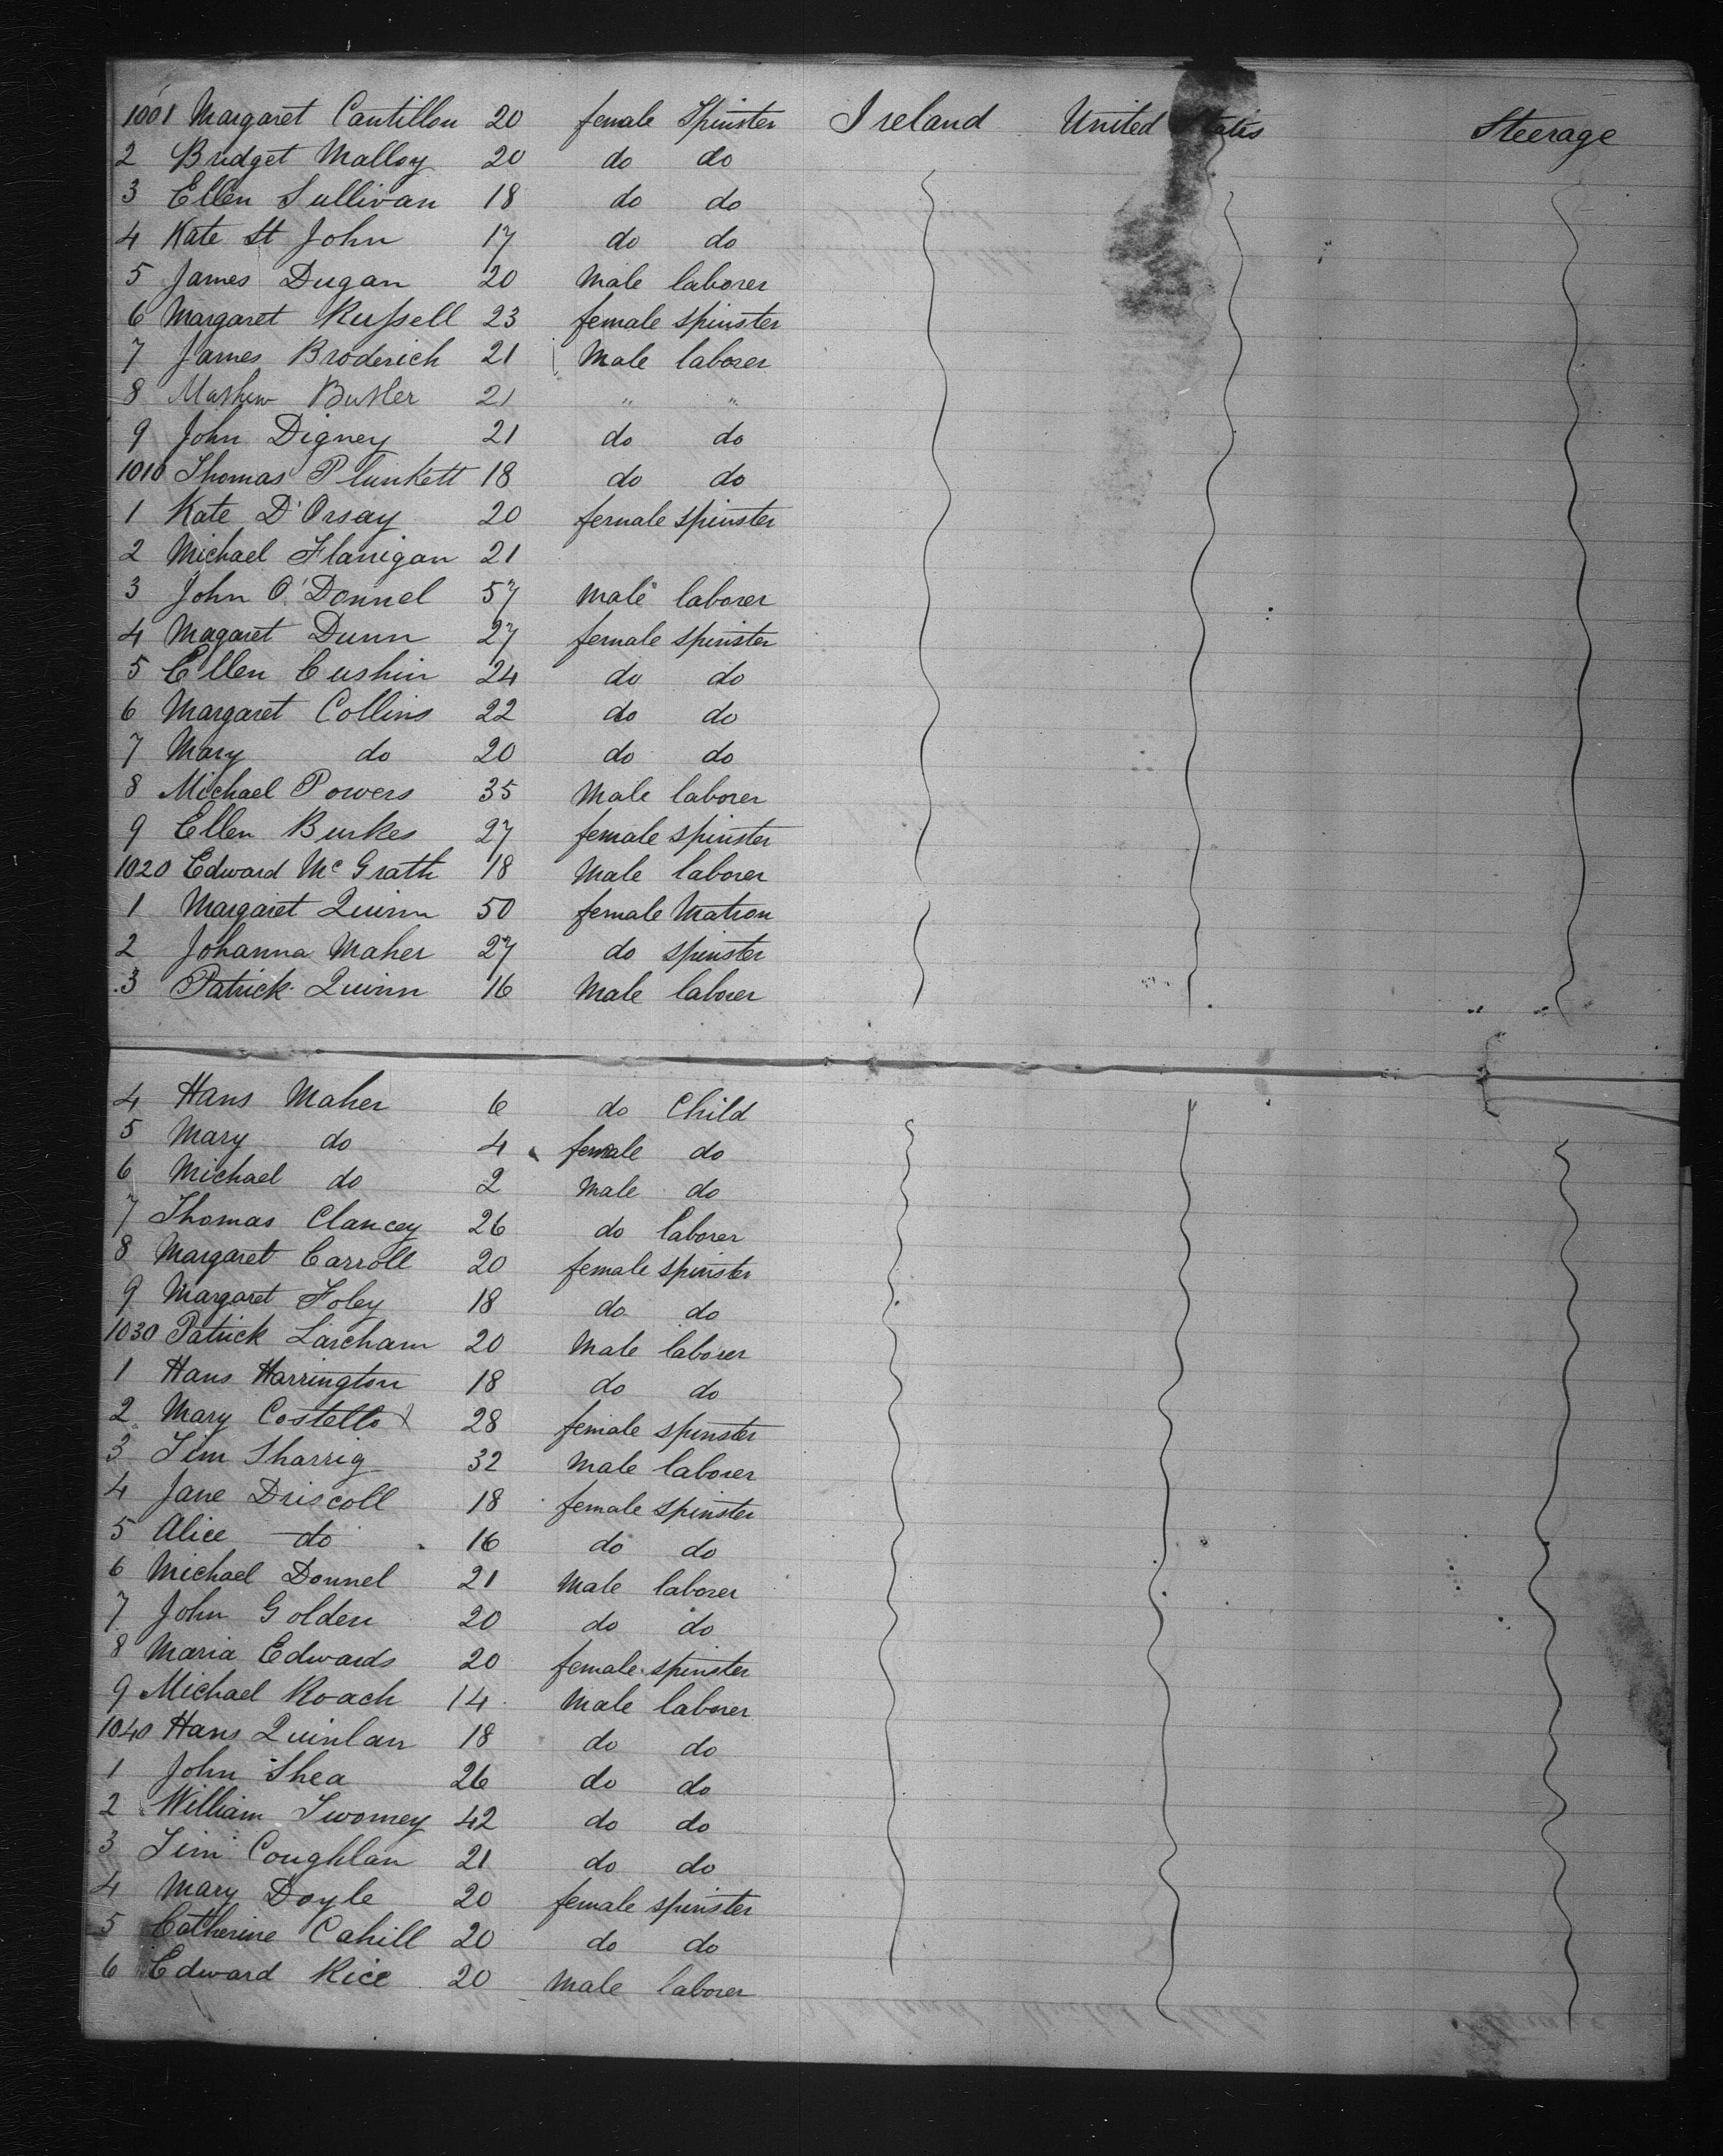 1001 Margaret Cantillon 20 female Spinster Ireland United States Steerage
2 Bridget Malloy 20 do do
3 Ellen Sullivan 18 do do
4 Kate St John 17 do do
5 James Dugan 20 Male laborer
6 Margaret Russell 23 female spinster
7 James Broderich 21 Male laborer
8 Mathew Butler 21 " "
9 John Digney 21 do do
1010 Thomas Plunkett 18 do do
1 Kate D'Orsay 20 female spinster
2 Michael Flanigan 21
3 John O'Donnel 57 Male laborer
4 Magaret Dunn 27 female spinster
5 Ellen Cushin 24 do do
6 Margaret Collins 22 do do
7 Mary do 20 do do
8 Michael Powers 35 Male laborer
9 Ellen Burkes 27 female spinster
1020 Edward McGrath 18 Male laborer
1 Margaret Quinn 50 female Matron
2 Johanna Maher 27 do spinster
3 Patrick Quinn 16 Male laborer
4 Hans Maher 6 do Child
5 Mary do 4 female do
6 Michael do 2 Male do
7 Thomas Clancey 26 do laborer
8 Margaret Carroll 20 female spinster
9 Margaret Foley 18 do do
1030 Patrick Larcham 20 Male laborer
1 Hans Harrington 18 do do
2 Mary Costello 28 female spinster
3 Tim Sharrig 32 Male laborer
4 Jane Driscoll 18 female spinster
5 Alice do 16 do do
6 Michael Donnel 21 Male laborer
7 John Golden 20 do do
8 Maria Edwards 20 female spinster
9 Michael Roach 14 Male laborer
1040 Hans Quinlan 18 do do
1 John Shea 26 do do
2 William Twomey 42 do do
3 Tim Coughlan 21 do do
4 Mary Doyle 20 female spinster
5 Catherine Cahill 20 do do
6 Edward Rice 20 Male laborer